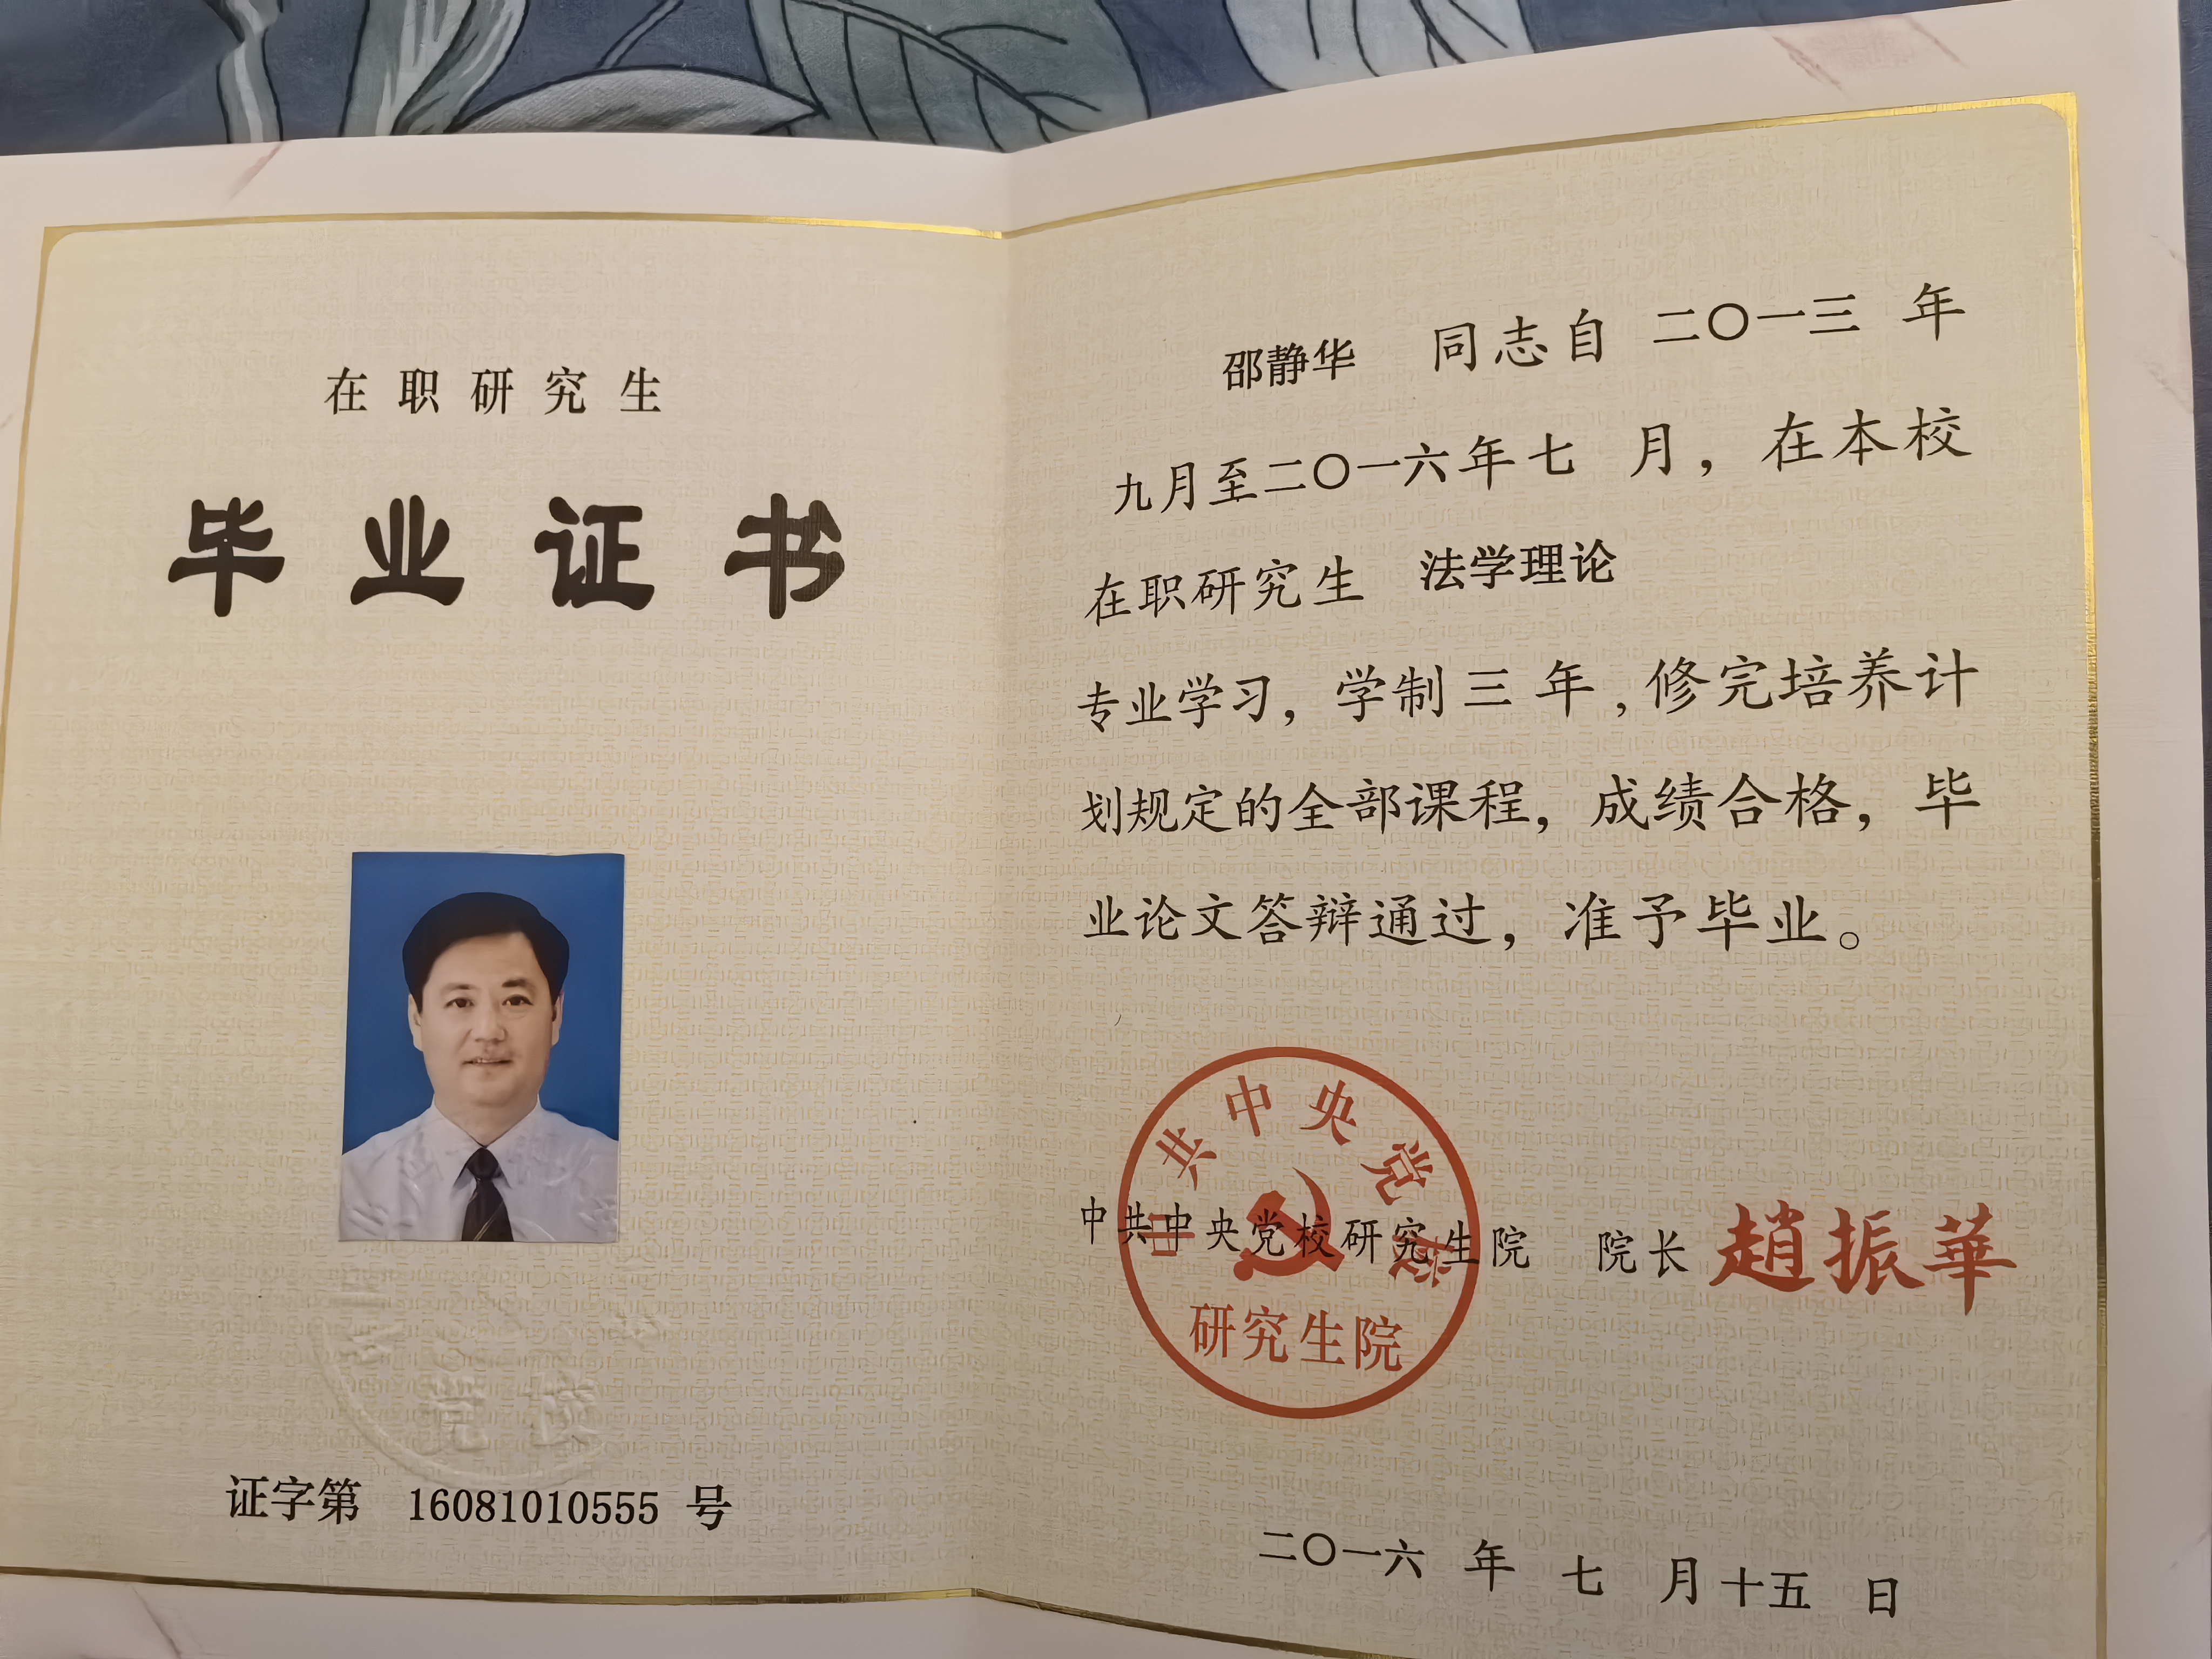 在职研究生
毕业证书
证字第 16081010555 号
邵静华 同志自 二〇一三 年
九月至二〇一六年七 月，在本校
在职研究生 法学理论
专业学习，学制三年，修完培养计
划规定的全部课程，成绩合格，毕
业论文答辩通过，准予毕业。
中共中央党校研究生院 院长 趙振華
中共中央党校
研究生院
二〇一六 年 七 月十五 日
党校